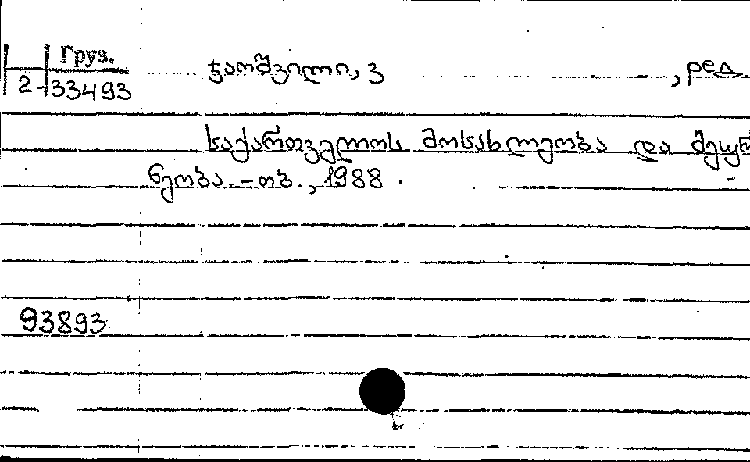 Груз.
2-33493
ჯაოშვილი, ვ , ред
საქართველოს მოსახლეობა და მეურ
ნეობა. - თბ., 1988.
93893